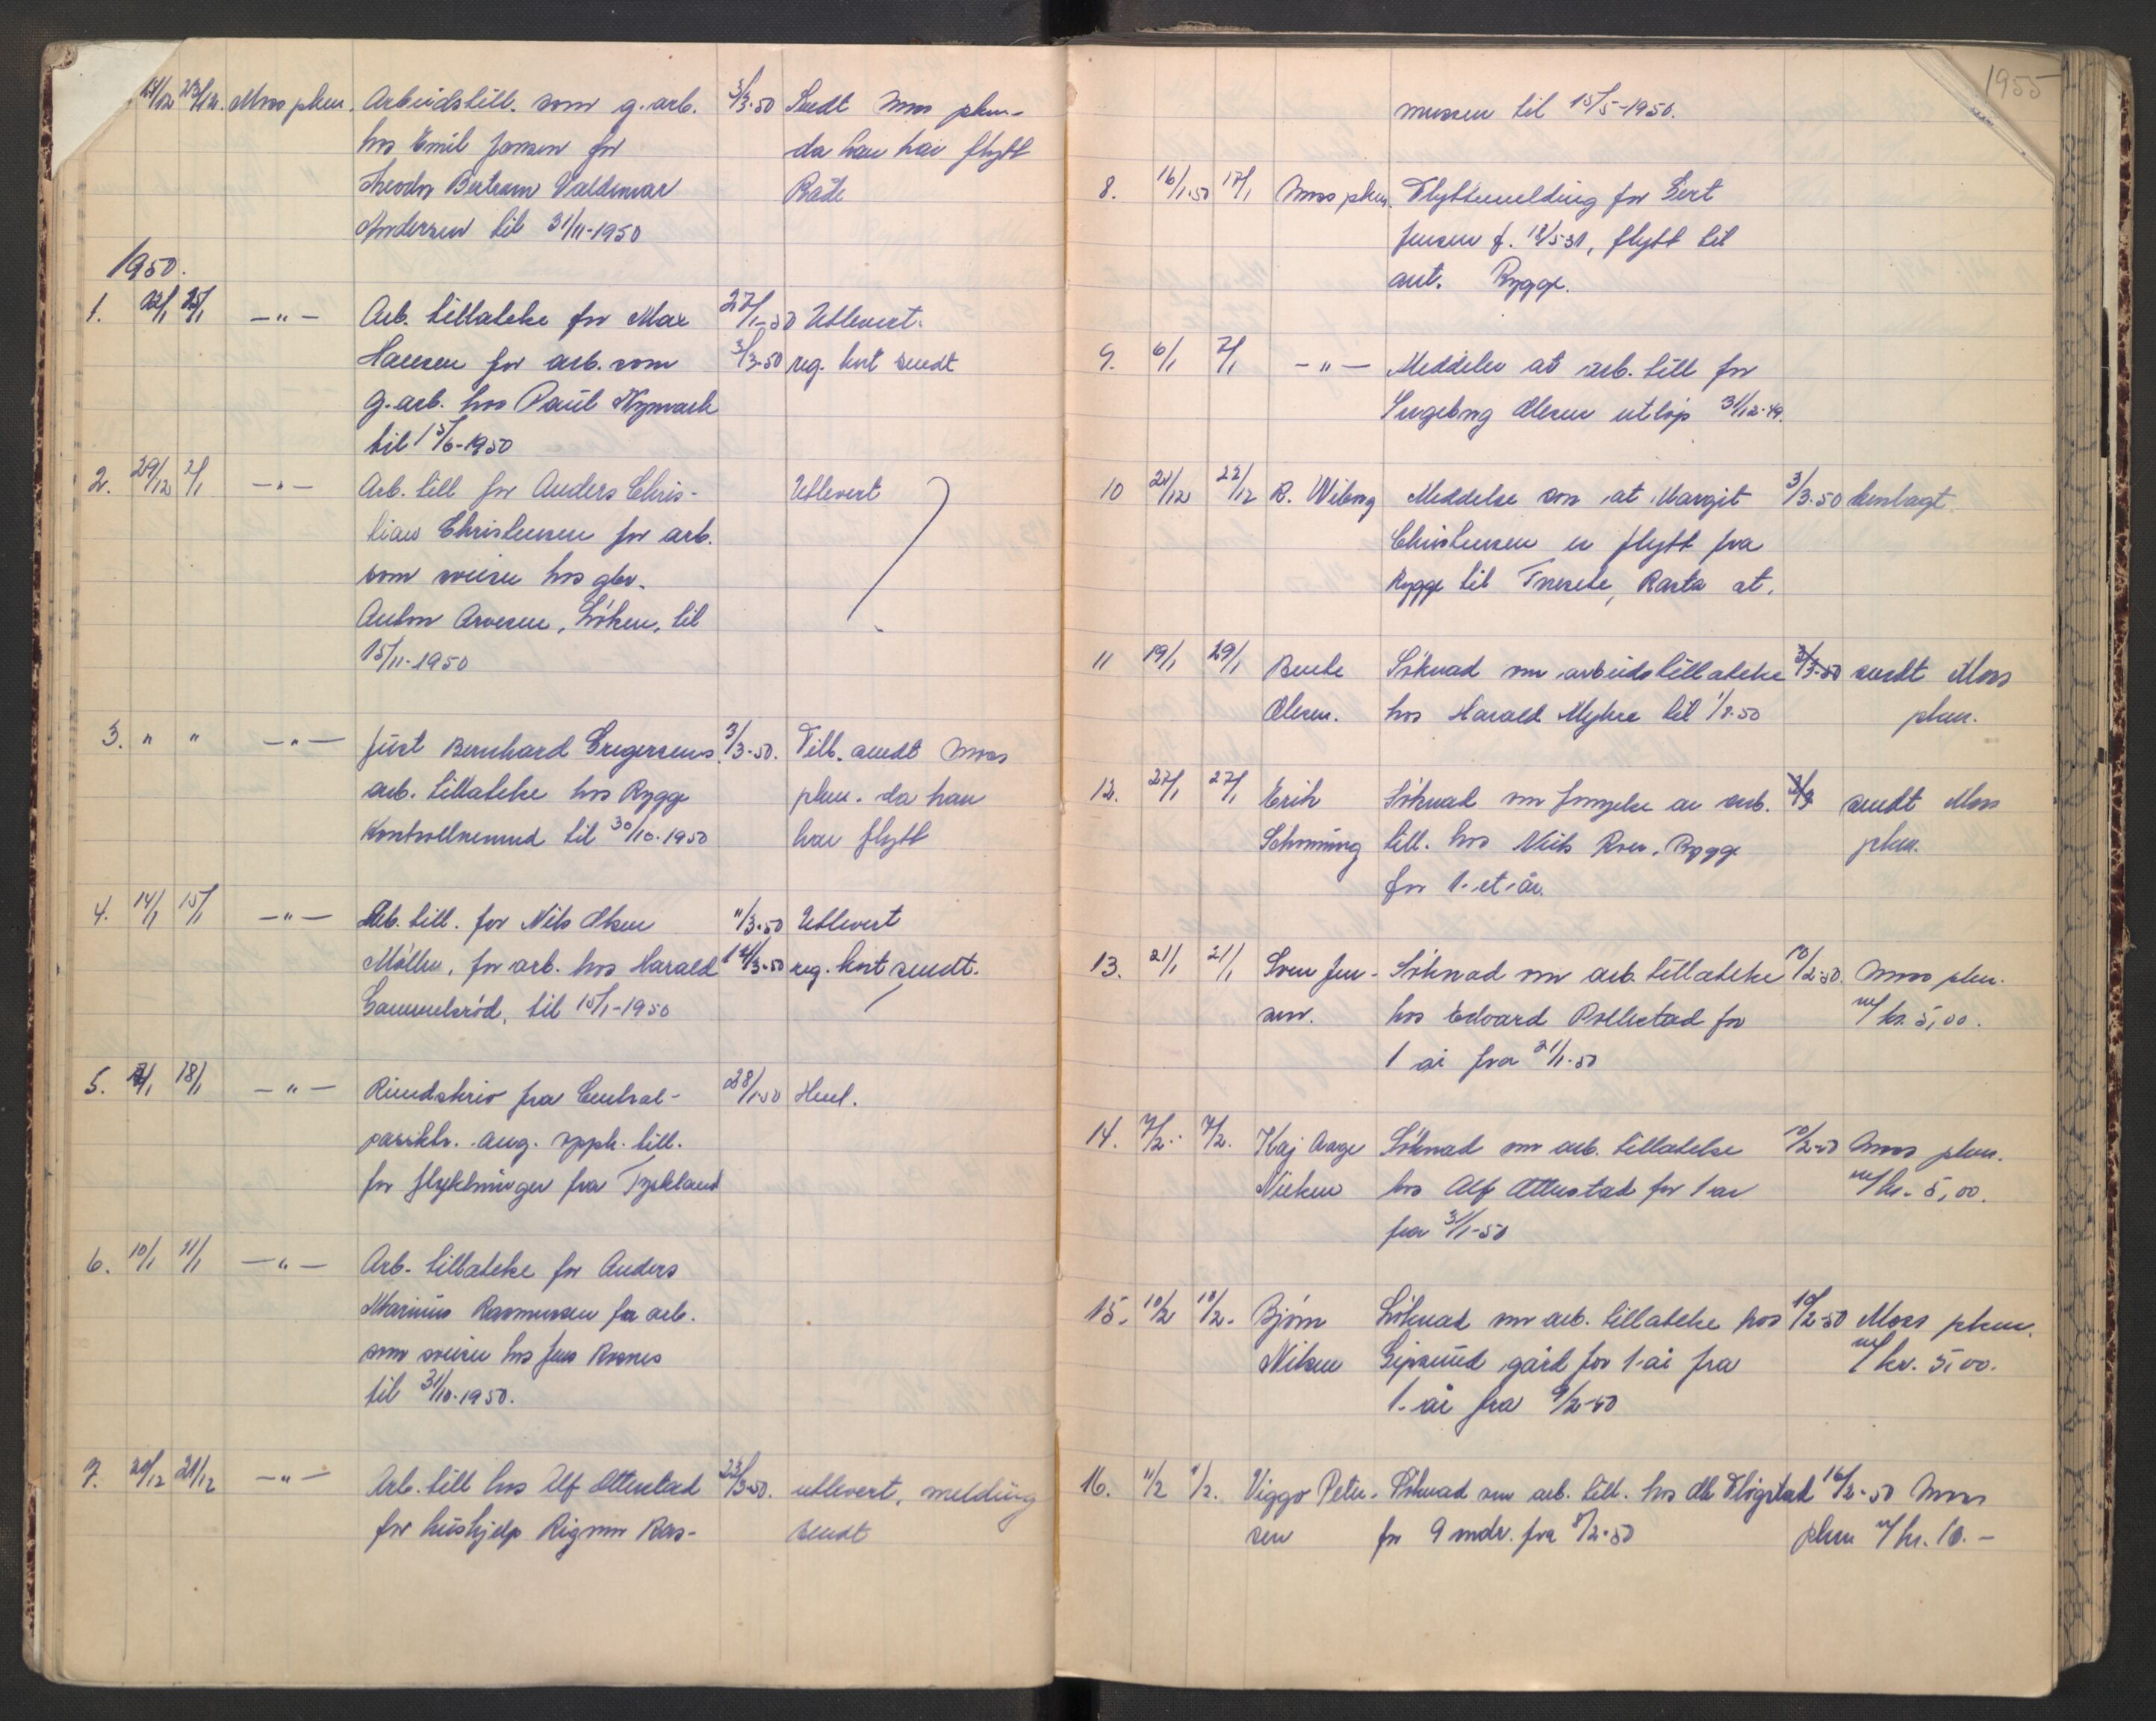 21/12 23/12. Moss pkm. Arbeidstill. som g. arb. 3/3-50 Sendt Moss pkm.
hos Emil Jansen for da han har flytt
Theodor Bertram Valdemar Råde
Andersen til 31/11-1950
1950.
1. 22/1 25/1 —"— Arb. tillatelse for Max 27/1-50 Utlevert.
Hansen for arb. som 3/3-50 reg. kort sendt
g. arb. hos Paul
til 15/6-1950
2. 29/12 2/1 —"— Arb. till for Anders Chris- Utlevert
tian Christensen for arb.
som sveiser hos gbr.
Anton Arvesen, Löken, til
15/11-1950
3. " " —"— Just Bernhard Gregersens 3/3-50. Till. sendt Moss
arb. tillatelse hos Rygge pkm. da han
Kontrollnemnd til 30/10-1950 har flytt
4. 14/1 15/1 —"— Arb. till. for Nils Olsen 11/3-50 Utlevert
Möller, for arb. hos Harald 14/3-50 reg. kort sendt.
Gammelsröd, til 15/1-1950
5. 18/1 —"— Rundskriv fra Central- 28/1-50 Henl.
passktr. ang. opph. till.
for flyktninger fra Tyskland
6. 10/1 11/1 —"— Arb. tillatelse for Anders
Marinus Rasmussen for arb.
som sveiser hos Jens Rosnes
til 31/10-1950.
7. 20/12 21/12 —"— Arb. till hos Alf Ottestad 23/3-50. utlevert, melding
for hushjelp Rigmor Ras- sendt
1955
mussen til 15/5-1950.
8. 16/1-50 17/1 Moss pkm. Flyttemelding for Gert
Jensen f. 18/5-31, flytt til
ant. Rygge.
9. 6/1 7/1 —"— Meddeler at arb. till for
Ingeborg Olesen utlöp 31/12-49.
10 21/12 22/12 R. Wiborg Meddelse om at Margit 3/3-50 henlagt
Christensen er flytt fra
Rygge til Rasta st.
11 19/1 29/1 Bente Söknad om arbeidstillatelse 3/3-50 sendt Moss
Olesen. hos Harald Myhre til 1/8-50 pkm.
12. 27/1 27/1 Erik Söknad om fornyelse av arb. sendt Moss
Schonning till. hos Niels Roer, Rygge pkm.
for 1-et-år.
13. 21/1 21/1 Sven Jen- Söknad om arb. tillatelse 10/2-50. Moss pkm.
sen. hos Edvard Pollestad for m/ kr. 5,00.
1 år fra 21/1-50
14. 7/2. 7/2. Kaj Aage Söknad om arb. tillatelse 10/2-50 Moss pkm.
Nielsen hos Alf Ottestad for 1 år m/ kr. 5,00.
fra 31/1-50
15. 10/2 10/2. Björn Söknad om arb. tillatelse hos 10/2-50 Moss pkm.
Nilsen Gipsund gård for 1-år fra m/ kr. 5,00.
1. år fra 9/2-50
16. 11/2 11/2. Viggo Peter- Söknad om arb. till. hos Ole Flogstad 16/2-50 Moss
sen for 9 mndr. fra 8/2-50 pkm m/ kr. 10.-